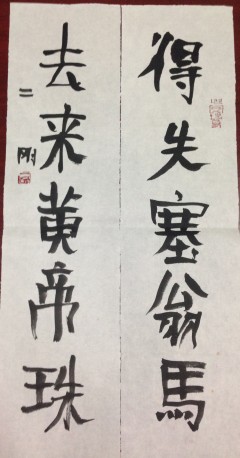 得失塞翁馬
去来黄帝珠
二剛